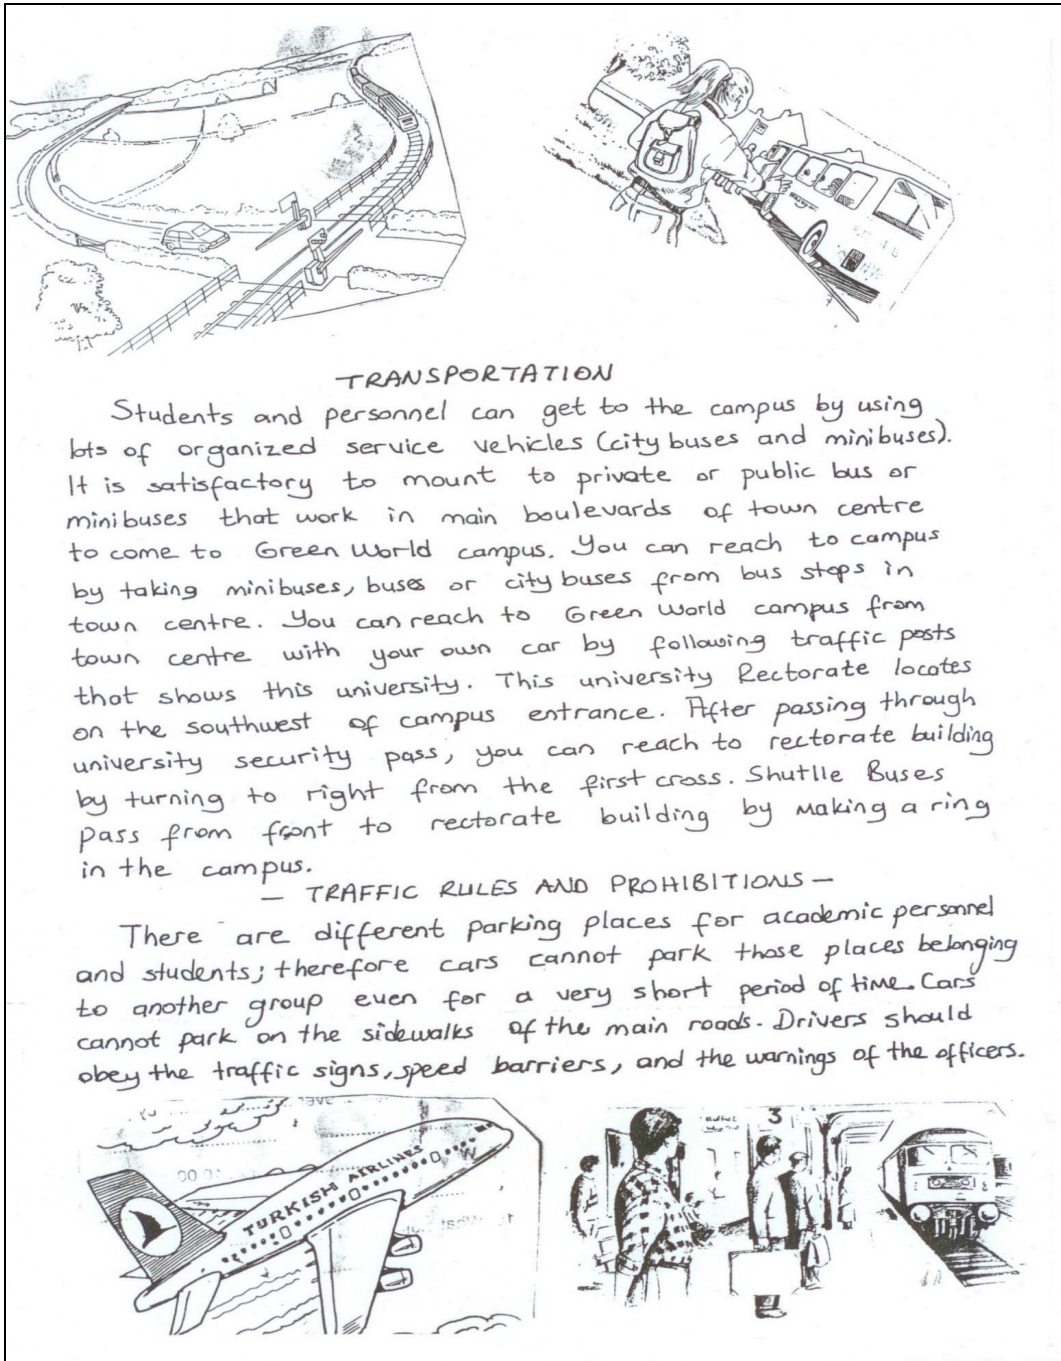 TRANSPORTATION
Students and personnel can get to the campus by using
lots of organized service vehicles (city buses and minibuses).
It is satisfactory to mount to private or public bus or
minibuses that work in main boulevards of town centre
to come to Green World campus. You can reach to campus
by taking minibuses, buses or city buses from bus stops in
town centre. You can reach to Green World campus from
town centre with your own car by following traffic posts
that shows this university. This university Rectorate locates
on the southwest of campus entrance. After passing through
university security pass, you can reach to rectorate building
by turning to right from the first cross. Shutlle Buses
pass from front to rectorate building by making a ring
in the campus.
— TRAFFIC RULES AND PROHIBITIONS —
There are different parking places for academic personnel
and students; therefore cars cannot park those places belonging
to another group even for a very short period of time. Cars
cannot park on the sidewalks of the main roads. Drivers should
obey the traffic signs, speed barriers, and the warnings of the officers.
TURKISH AIRLINES
3